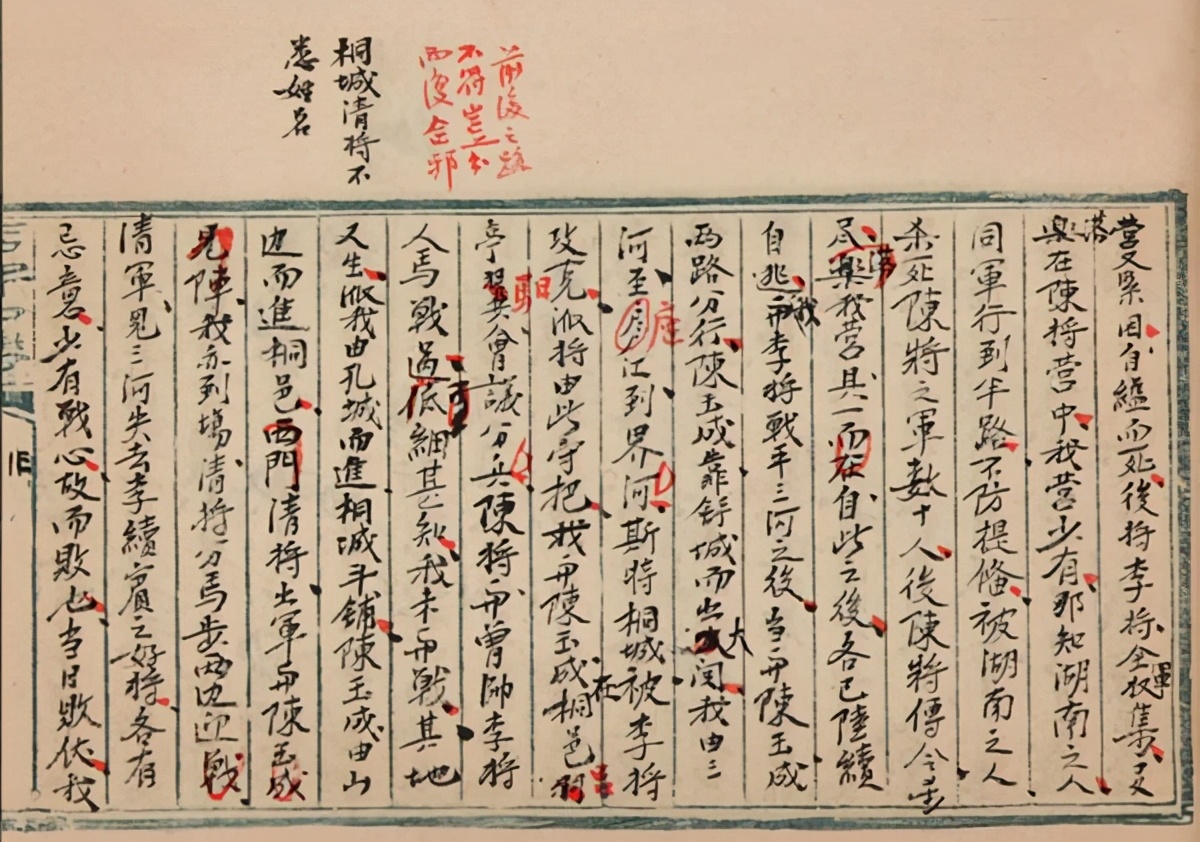 前後之路
不符豈
而後邪
桐城清将不
悉姓名
營又緊困自縊而死後将李将全軍收集又
落在陳将營中我營少有那知湖南之人
同軍行到半路不防提俻被湖南之人
殺死陳将之軍數十人後陳将傳令殺
尽落我營具一而在自此之後各已陸續
自逃我而李将戰平三河之後当而陳玉成
両路分行陳玉成靠舒城而出大関我由三
河至庐江到界河斯時桐城被李将
攻克派将由此守把我而陳玉成在桐邑呂
亭馹會議分兵陳将而曾帥李将
人馬戰過可細其知我未而戰其地
又生派我由孔城而進桐城斗鋪陳玉成由山
边而進桐邑西門清将出軍而陳玉成
見陣我亦到塲清将分馬步両边迎戰
清軍見三河失去李續賔之好将各有
忌意少有戰心故而敗也当日敗伏我